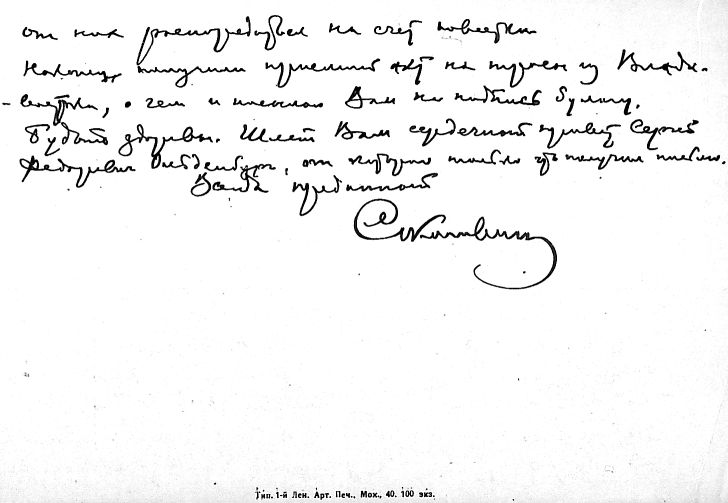 от них распоряжения на счет повестки
Наконец, получили приемный акт на турбины из Влади-
-востока, о чем и посылаю Вам на подпись бумагу.
Будьте здоровы. Шлет Вам сердечный привет Сергей
Федорович Ольденбург, от которого только что получил письмо.
Ваш преданный
Тип. 1-й Лен. Арт. Печ., Мох., 40. 100 экз.